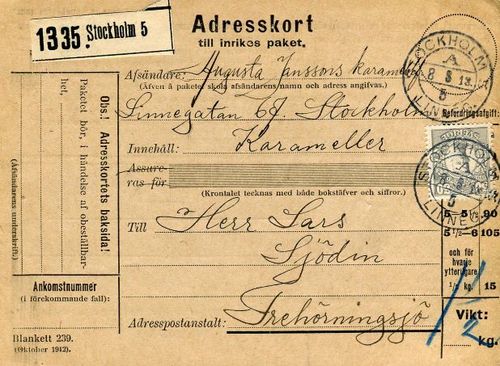 1335. Stockholm 5
Adresskort
till inrikes paket.
Afsändare: Augusta Janssons karamel
(Äfven å paketet skola afsändarens namn och adress angifvas.)
Linnegatan 67. Stockholm
Befordringsafgift:
Innehåll: Karameller
Assure-
ras för
(Krontalet tecknas med både bokstäfver och siffror.)
Till Herr Lars
Sjödin
Adresspostanstalt: Trehörningsjö
Obs.! Adresskortets baksida!
Paketet bör, i händelse af obeställbar-
het,
(Afsändarens underskrift.)
Ankomstnummer
(i förekommande fall):
Blankett 239.
(Oktober 1912).
STOCKHOLM
A
8 3 13
5
LINNÉG.
STOCKHOLM
A
8 3 13
5
LINNÉG.
5-5½ 90
5½-6 105
och för
hvarje
ytterligare
½ kg. 15
Vikt:
1/2
kg.